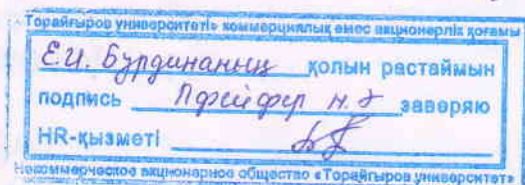 «Торайғыров университеті» коммерциялық емес акционерлік қоғамы
Е.И. Бурдинаның қолын растаймын
подпись Пфейфер Н.Э заверяю
HR-қызметі
Некоммерческое акционерное общество «Торайғыров университет»